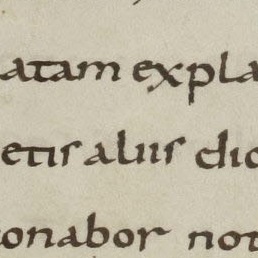 atam expla
etis aliis dic
onabor not